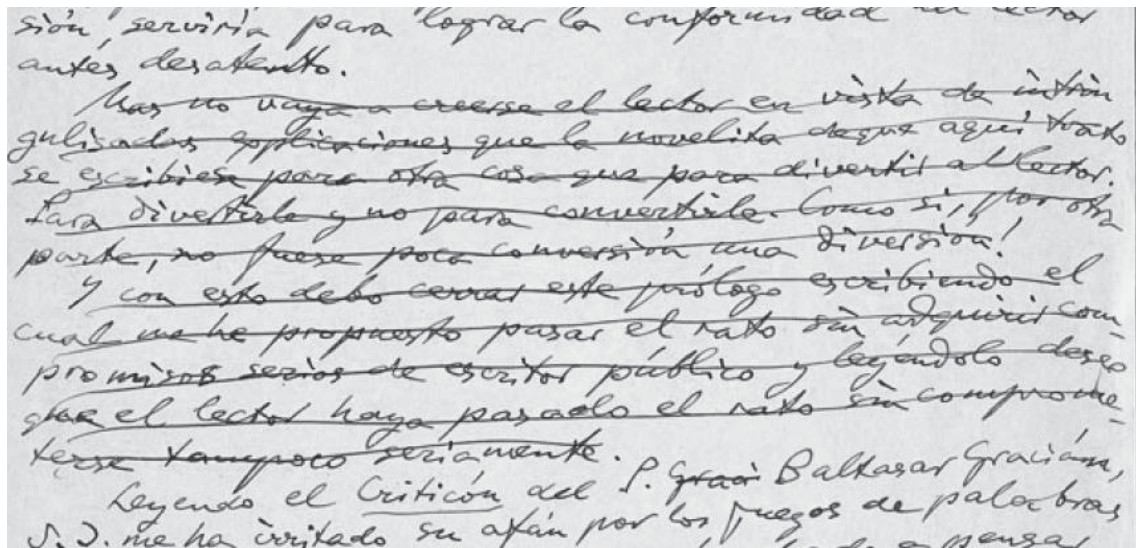 sión, serviría para lograr la conformidad del lector
antes desatento.
Mas no vaya a creerse el lector en vista de intrin
gulisadas explicaciones que la novelita de que aquí trato
se escribiese para otra cosa que para divertir al lector.
Para divertirle y no para convertirle. Como si, por otra
parte, no fuese poca conversión una diversión!
Y con esto debo cerrar este prólogo escribiendo el
cual me he propuesto pasar el rato sin adquirir com
promisos serios de escritor público y leyéndolo deseo
que el lector haya pasado el rato sin comprome-
terse tampoco seriamente.
Leyendo el Criticón del P. Graci Baltasar Gracián,
S. J. me ha irritado su afán por los juegos de palabras
pensar